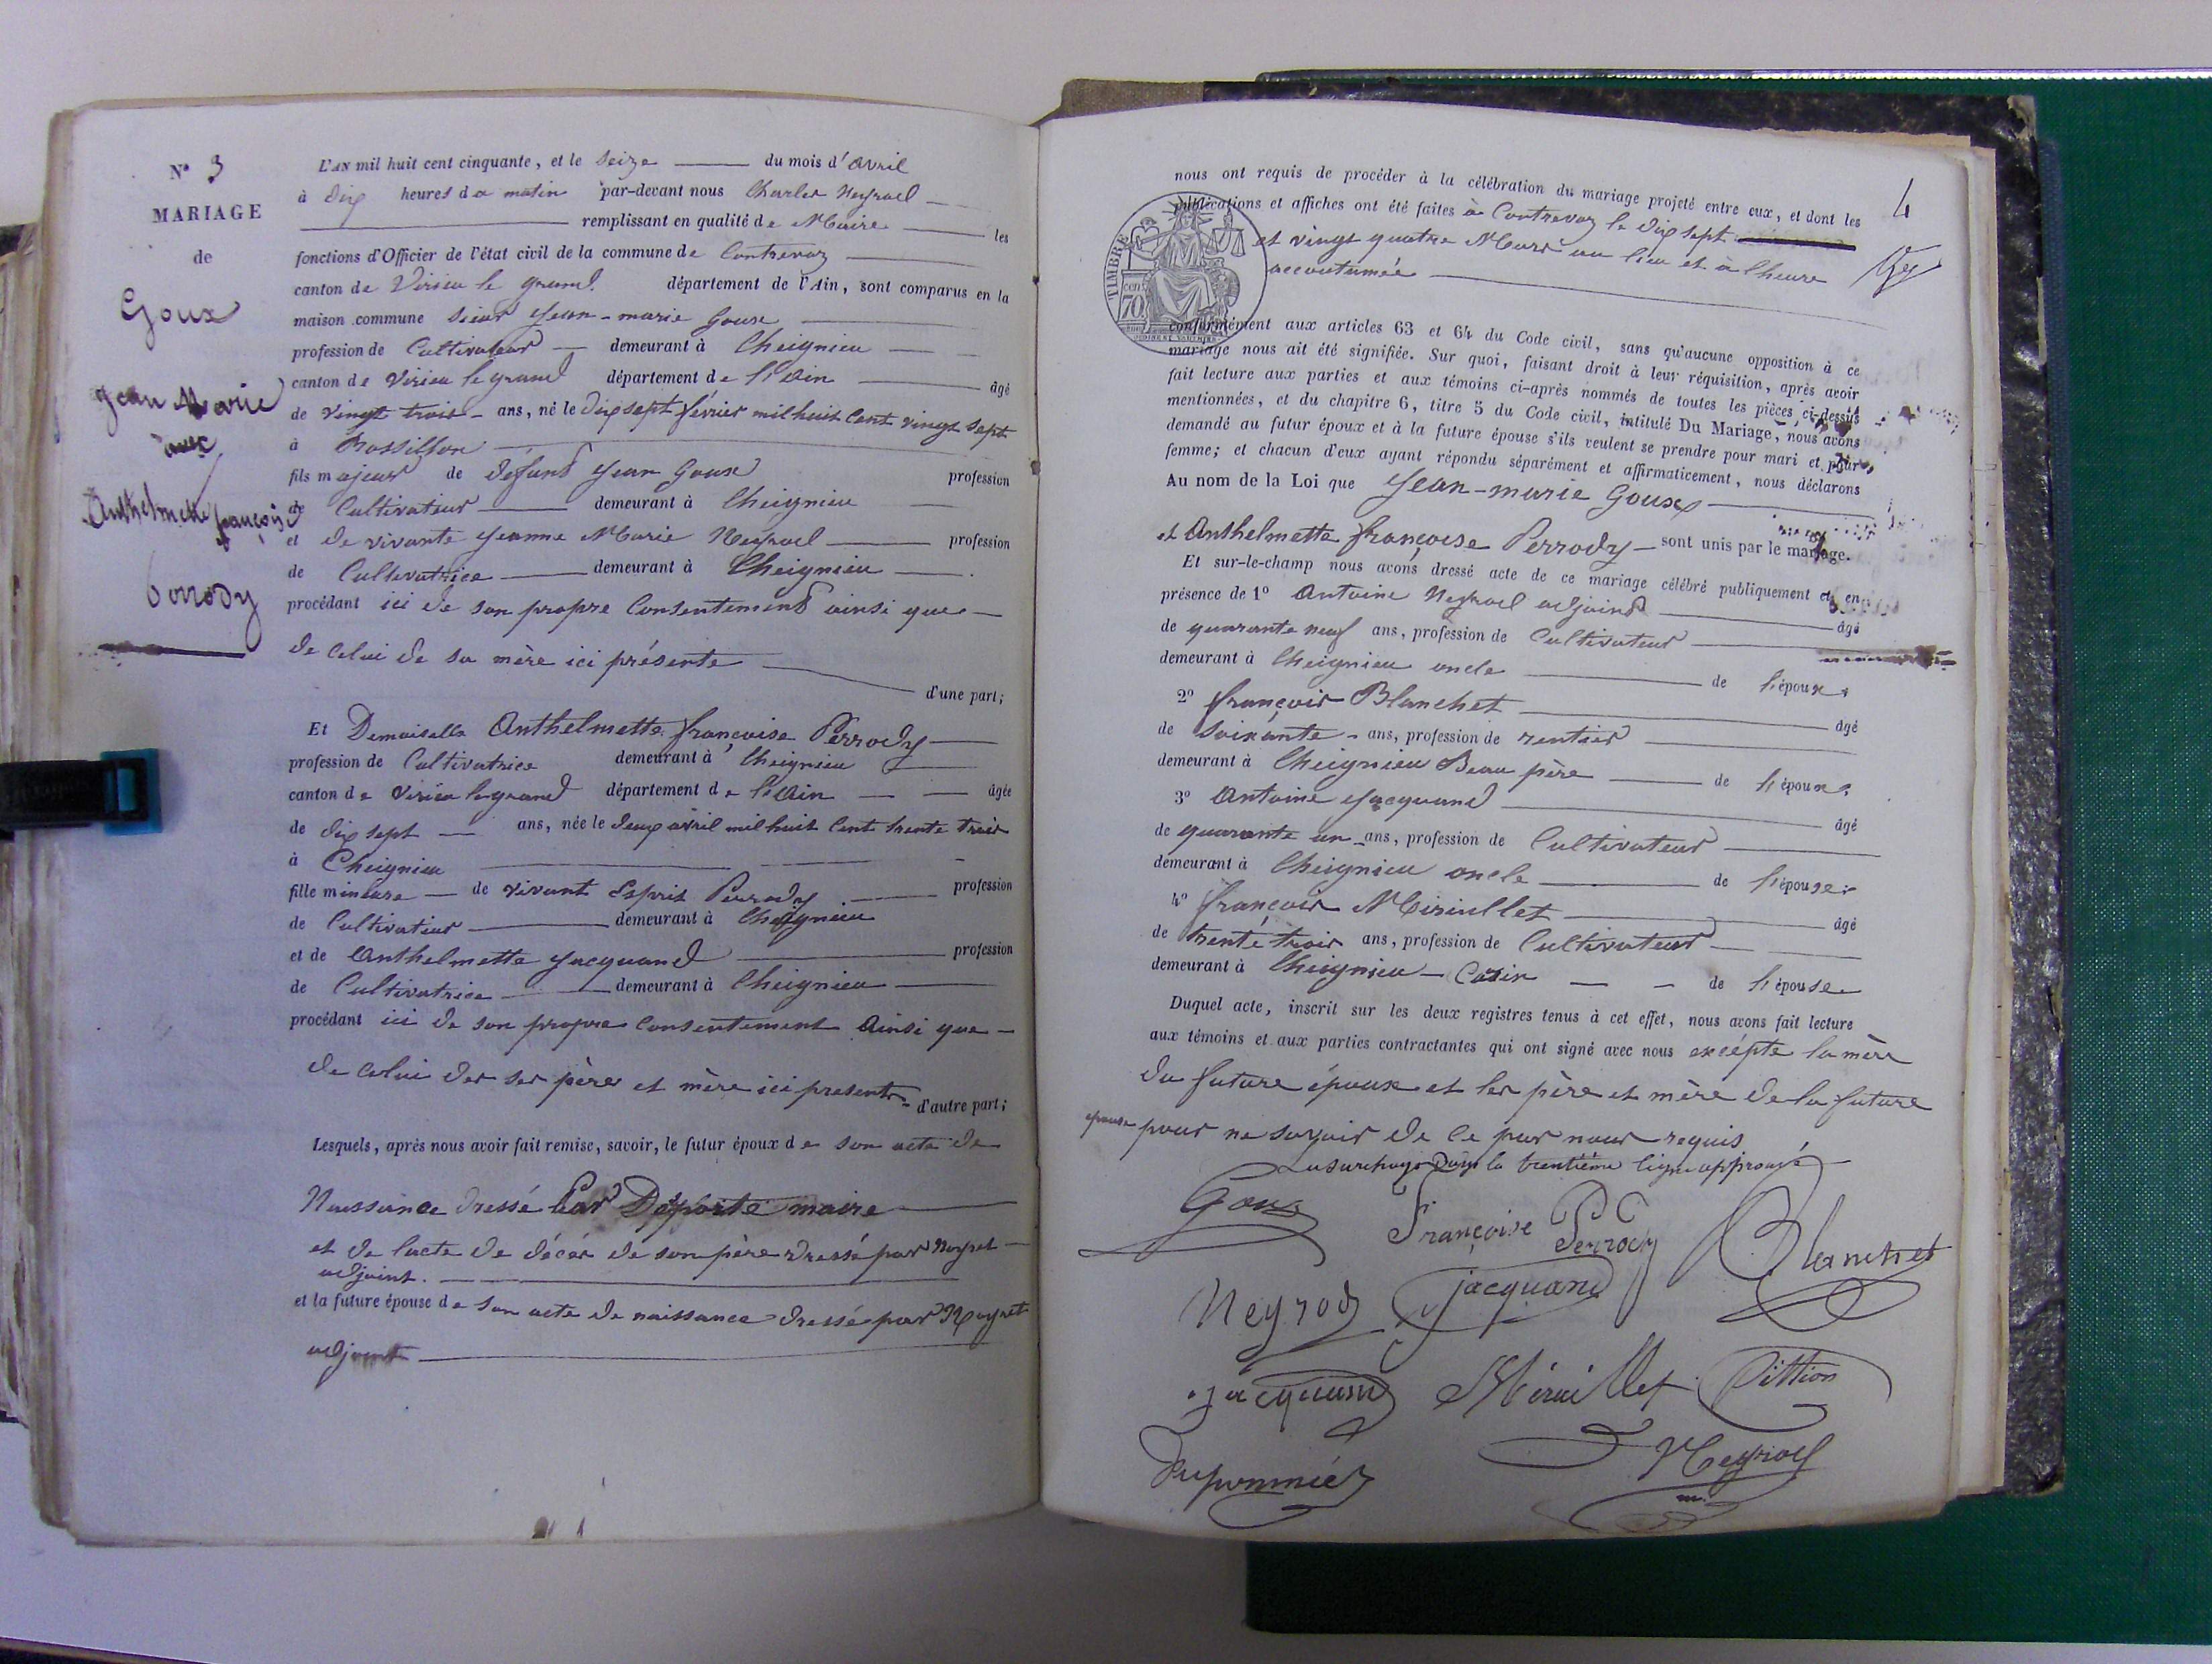 N° 3
MARIAGE
de
Goux
Jean Marie
avec
Anthelmette françoise
Perrody
L'AN mil huit cent cinquante, et le Seize du mois d'avril
à dix heures du matin par-devant nous Charles Neyroud
remplissant en qualité de Maire les
fonctions d'Officier de l'état civil de la commune de Contrevoz
canton de Virieu le grand département de l'Ain, sont comparus en la
maison commune Sieur Jean-marie Goux
profession de Cultivateur demeurant à Cheignieu
canton de Virieu le grand département de l'Ain âgé
de vingt trois ans, né le dix sept février mil huit Cent vingt sept
à Rossillon
fils majeur de défunt Jean Goux profession
de Cultivateur demeurant à Cheignieu
et de vivante Jeanne Marie Neyroud profession
de Cultivatrice demeurant à Cheignieu
procédant ici de son propre Consentement ainsi que
de Celui de sa mère ici présente
d'une part;
Et Demoiselle Anthelmette françoise Perrody
profession de Cultivatrice demeurant à Cheignieu
canton de Virieu le grand département de l'Ain âgée
de dix sept ans, née le deux avril mil huit Cent trente trois
à Cheignieu
fille mineure de vivant Esprit Perrody profession
de Cultivateur demeurant à Cheignieu
et de Anthelmette Jacquand profession
de Cultivatrice demeurant à Cheignieu
procédant ici de son propre Consentement Ainsi que
de celui des ses père et mère ici présents d'autre part;
Lesquels, après nous avoir fait remise, savoir, le futur époux de son acte de
Naissance dressé Par maire
et de l'acte de décès de son père dressé par Neyret
adjoint.
et la future épouse de son acte de naissance dressé par Neyret
adjoint
4
nous ont requis de procéder à la célébration du mariage projeté entre eux, et dont les
publications et affiches ont été faites à Contrevoz le dix sept
et vingt quatre Mars au lieu et à l'heure
accoutumée
TIMBRE
70 cent
conformément aux articles 63 et 64 du Code civil, sans qu'aucune opposition à ce
mariage nous ait été signifiée. Sur quoi, faisant droit à leur réquisition, après avoir
fait lecture aux parties et aux témoins ci-après nommés de toutes les pièces ci-dessus
mentionnées, et du chapitre 6, titre 5 du Code civil, intitulé Du Mariage, nous avons
demandé au futur époux et à la future épouse s'ils veulent se prendre pour mari et pour
femme; et chacun d'eux ayant répondu séparément et affirmativement, nous déclarons
Au nom de la Loi que Jean-marie Goux
et Anthelmette françoise Perrody sont unis par le mariage.
Et sur-le-champ nous avons dressé acte de ce mariage célébré publiquement et en
présence de 1° Antoine Neyroud adjoint âgé
de quarante neuf ans, profession de Cultivateur
demeurant à Cheignieu oncle de l'époux
2° françois Blanchet âgé
de Soixante ans, profession de rentier
demeurant à Cheignieu Beau père de l'époux
3° Antoine Jacquand âgé
de quarante un ans, profession de Cultivateur
demeurant à Cheignieu oncle de l'épouse
4° françois Miraillet âgé
de trente trois ans, profession de Cultivateur
demeurant à Cheignieu Cosin de l'épouse
Duquel acte, inscrit sur les deux registres tenus à cet effet, nous avons fait lecture
aux témoins et aux parties contractantes qui ont signé avec nous excépte la mère
du future époux et les père et mère de la future
épouse pour ne savoir de Ce par nous requis
La surcharge dans la trentième ligne approuvé
Goux
Françoise Perrody
Blanchet
Neyrod
jacquand
jacquand
Miraillet
Pittion
Duponnier
Neyroud
m.